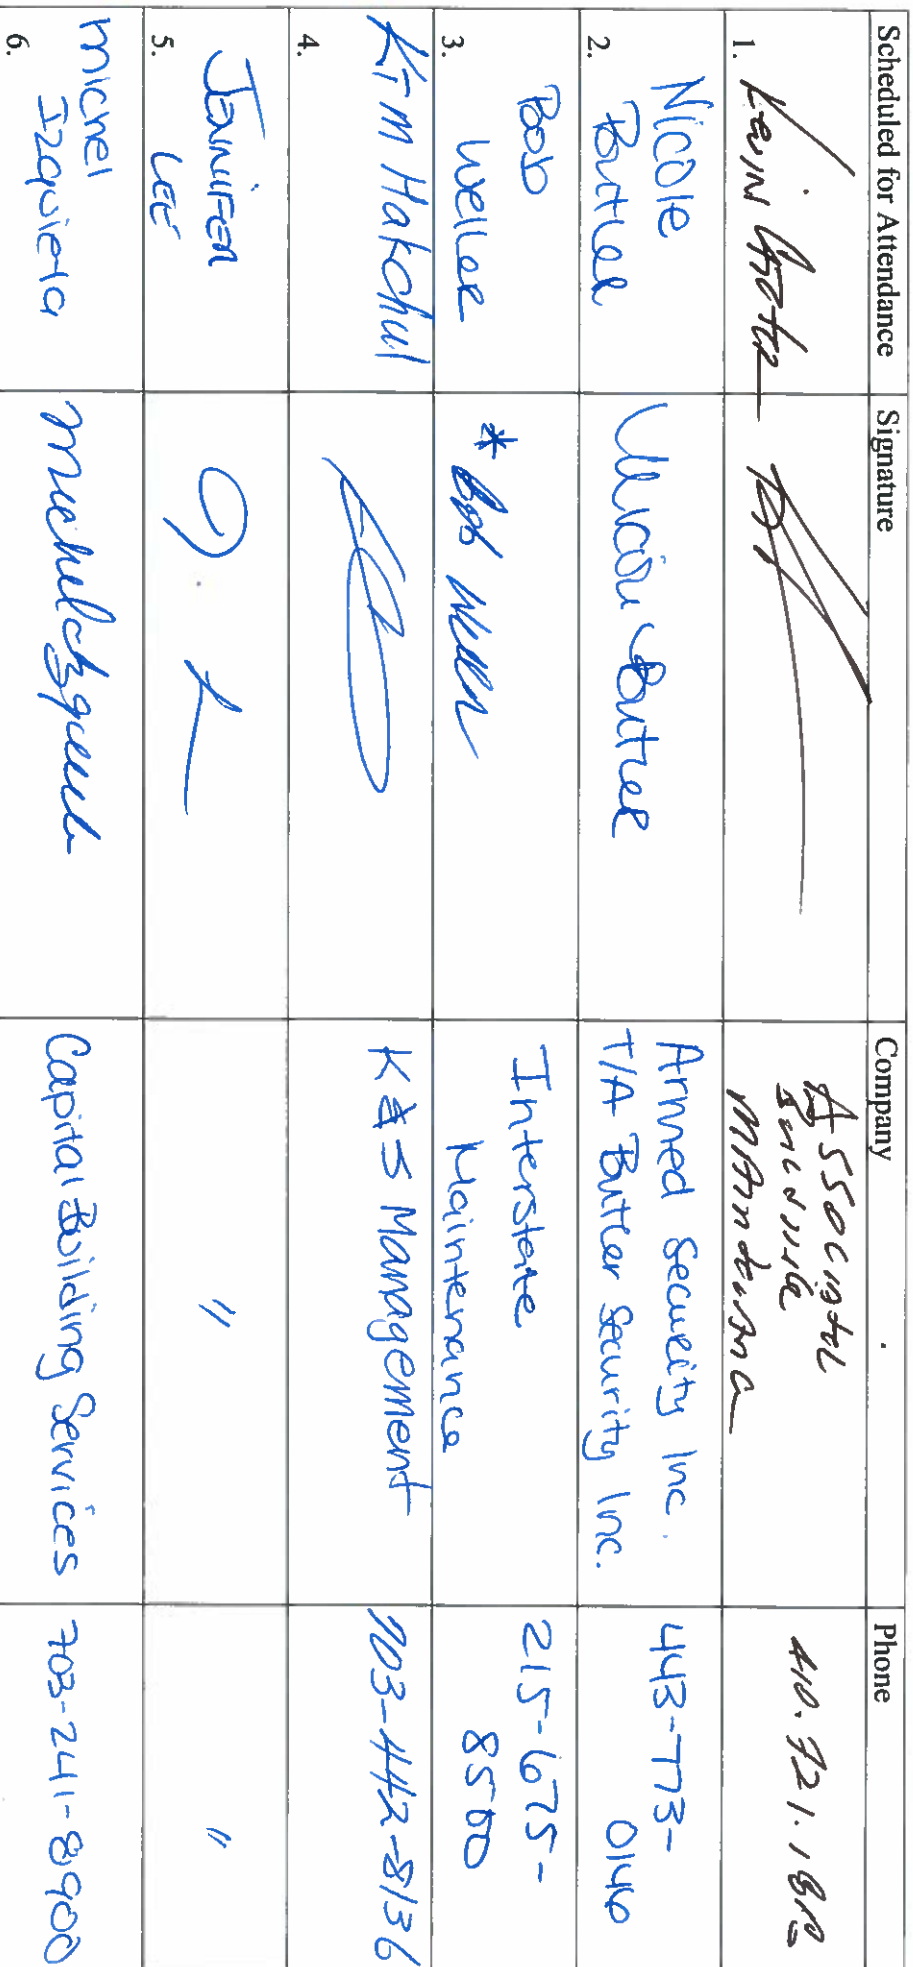 Scheduled for Attendance Signature Company Phone
1. Kevin
Associated
Building
Maintenance
410.721.18
2. Nicole
Butler
Nicole Butler
Armed Security Inc.
T/A Butler Security Inc.
443-773-
0146
3. Bob
Weller
* Bob Weller
Interstate
Maintenance
215-675-
8500
4. Kim Hakchul
K & S Management
703-442-8136
5. Jennifer
Lee
J. L
"
"
6. michel
Izquierdo
Capital Building Services
703-241-8900